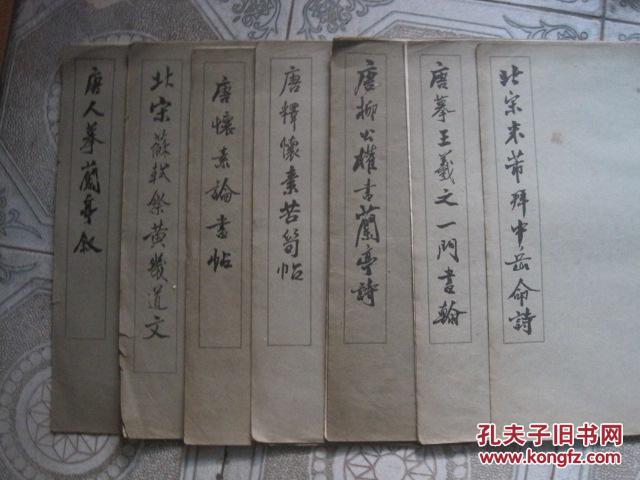 北宋米芾拜中岳命詩
唐摹王羲之一門書翰
唐柳公權書蘭亭詩
唐釋懷素苦筍帖
唐懷素論書帖
北宋蘇軾祭黃幾道文
唐人摹蘭亭敘
孔夫子旧书网
www.kongfz.com